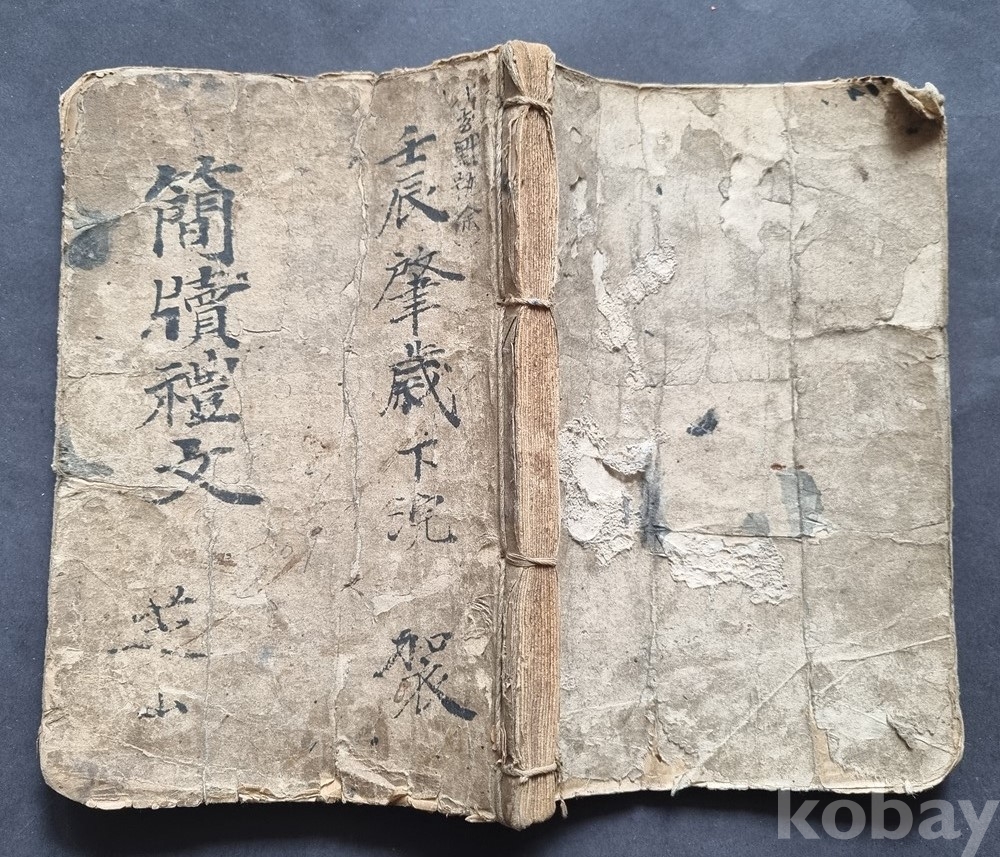 簡牘禮文
芝山
壬辰肇歲下浣
袈
kobay